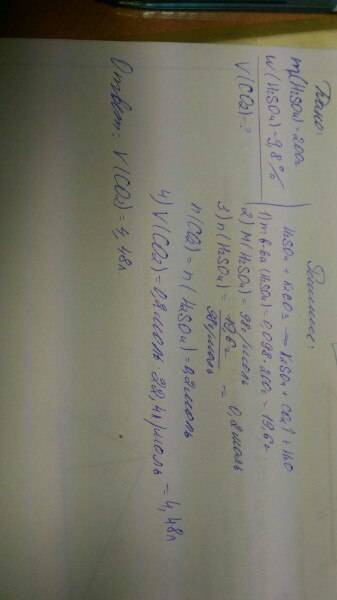 Дано:
m(H₂SO₄)=200г
w(H₂SO₄)-9,8%
V(CO₂)-?
Решение:
H₂SO₄ + K₂CO₃ — K₂SO₄ + CO₂↑ + H₂O
1) m в-ва (H₂SO₄)=0,098·200г=19,6г
2) M(H₂SO₄)=98г/моль
3) n(H₂SO₄) = 19,6г / 98г/моль = 0,2моль
n(CO₂)=n(H₂SO₄)=0,2моль
4) V(CO₂)=0,2моль·22,4л/моль=4,48л
Ответ: V(CO₂)=4,48л